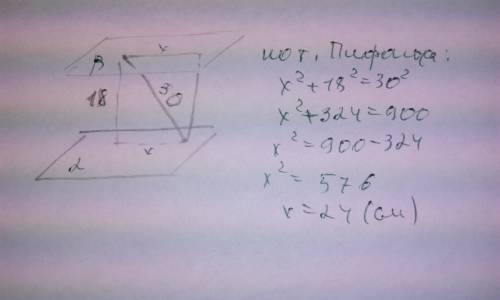 x
β
18
30
x
α
по т. Пифагора:
x²+18²=30²
x²+324=900
x²=900-324
x²= 576
x=24 (см)